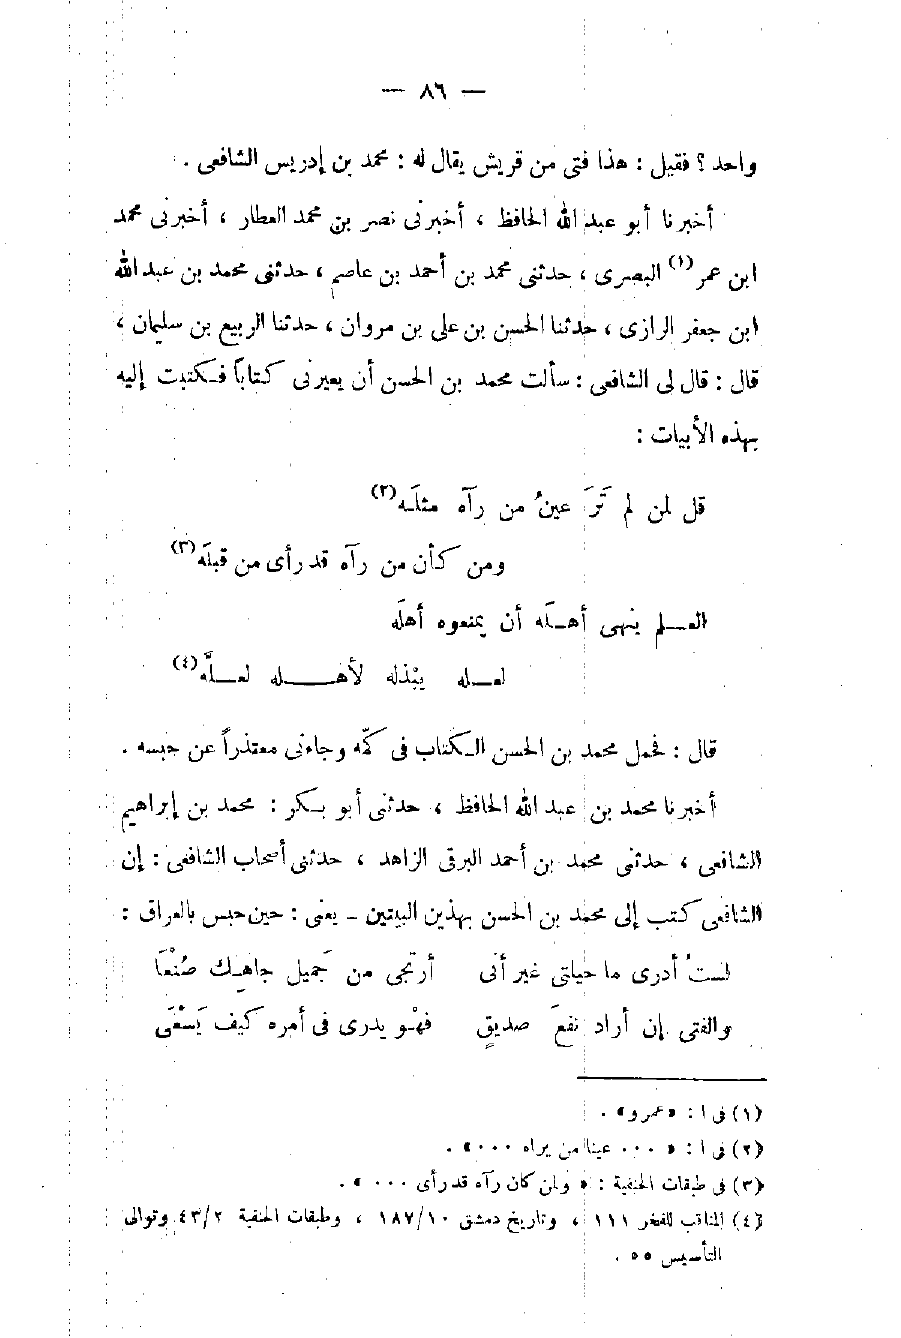 — ٨٦ —
واحد ؟ فقيل : هذا فتى من قريش يقال له : محمد بن إدريس الشافعى .
أخبرنا أبو عبد الله الحافظ ، أخبرنى نصر بن محمد العطار ، أخبرنى محمد
ابن عمر(١) البصرى ، حدثنى محمد بن أحمد بن عاصم ، حدثنى محمد بن عبد الله
ابن جعفر الرازى ، حدثنا الحسن بن على بن مروان ، حدثنا الربيع بن سليمان ،
قال : قال لى الشافعى : سألت محمد بن الحسن أن يعيرنى كتاباً فكتبت إليه
بهذه الأبيات :
قل لمن لم تَرَ عينُ من رآه مثلَه(٢)
ومن كأن من رآه قد رأى من قبلَه(٣)
العلم ينهى أهلَه أن يمنعوه أهلَه
لعله يبْذله لأهله لعلَّه(٤)
قال : فحمل محمد بن الحسن الكتاب فى كمّه وجاءنى معتذراً عن حبسه .
أخبرنا محمد بن عبد الله الحافظ ، حدثنى أبو بكر : محمد بن إبراهيم
الشافعى ، حدثنى محمد بن أحمد البرقى الزاهد ، حدثنى أصحاب الشافعى : إن
الشافعى كتب إلى محمد بن الحسن بهذين البيتين – يعنى : حين حبس بالعراق :
لستُ أدرى ما حيلتى غير أنى أرتجى من جَميل جاهِك صُنْعَا
والفتى إن أراد نفعَ صديقٍ فهْو يدرى فى أمره كيف يَسْعَى
(١) فى ا : «عمرو» .
(٢) فى ا : « ٠٠٠ عينا من يراه ٠٠٠ » .
(٣) فى طبقات الحنفية : « ولمن كان رآه قد رأى ٠٠٠ » .
(٤) المناقب للفخر ١١١ ، وتاريخ دمشق ١٨٧/١٠ ، وطبقات الحنفية ٤٣/٢ وتوالى
التأسيس ٥٥ .